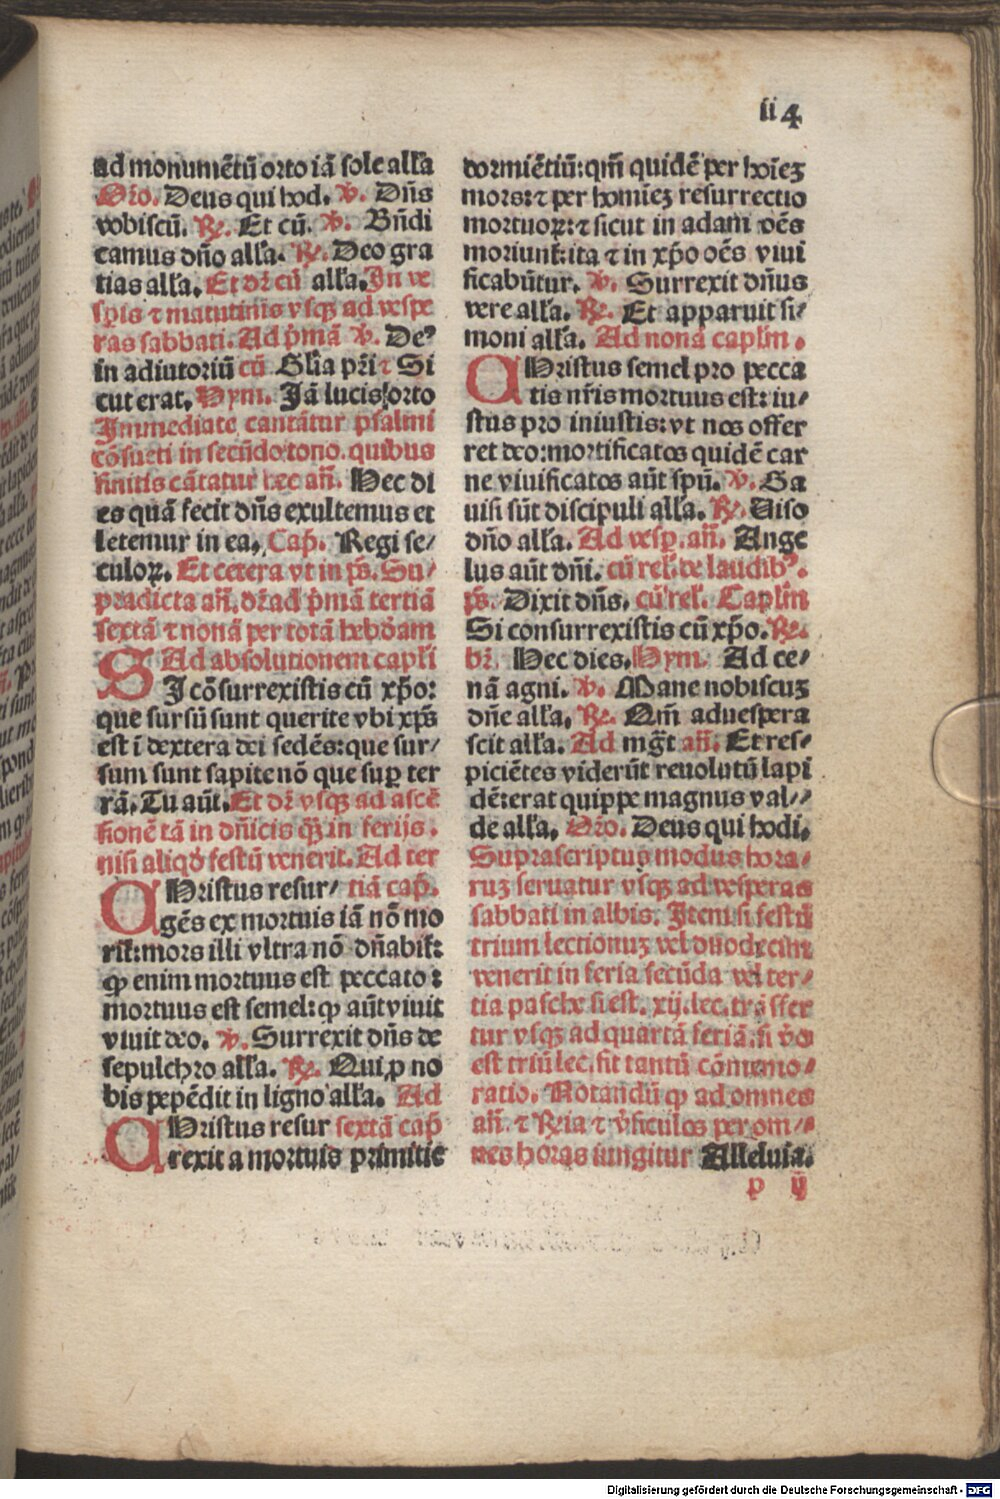 ii4
ad monumẽtũ orto iã sole alľa
Oro. Deus qui hod. ℣. Dñs
vobiscũ. ℟. Et cũ. ℣. Bñdi
camus dño alľa. ℟. Deo gra
tias alľa. Et dr̃ cũ alľa. In ve
speris ⁊ matutinis vsqꝫ ad vespe
ras sabbati. Ad p̃mã ℣. De⁹
in adiutoriũ cũ Glľia pr̃i ⁊ Si
cut erat. Hym. Jã lucis orto
Immediate cantãtur psalmi
cõsueti in secũdo tono. quibus
finitis cãtatur hec añ. Hec di
es quã fecit dñs exultemus et
letemur in ea. Cap̃. Regi se/
culoꝝ. Et cetera vt in ps̃. Su/
pradicta añ. dr̃ ad p̃mã tertiã
sextã ⁊ nonã per totã hebdam
Ad absolutionem capľi
SI cõsurrexistis cũ xp̃o:
que sursũ sunt querite vbi xp̃s
est ĩ dextera dei sedẽs: que sur/
sum sunt sapite nõ que suꝑ ter
rã. Tu aũt. Et dr̃ vsqꝫ ad ascẽ
sionẽ tã in dñicis qꝫ̃ in ferijs.
nisi aliqđ festũ venerit. Ad ter
CHristus resur/ tiã cap̃.
gẽs ex mortuis iã nõ mo
rit̃: mors illi vltra nõ dñabit̃:
ꝙ enim mortuus est peccato:
mortuus est semel: ꝙ aũt viuit
viuit deo. ℣. Surrexit dñs de
sepulchro alľa. ℟. Qui ꝓ no
bis pepẽdit in ligno alľa. Ad
CHristus resur sextã cap̃
rexit a mortuis primitie
dormiẽtiũ: qm̃ quidẽ per hoĩeꝫ
mors: ⁊ per homĩeꝫ resurrectio
mortuoꝝ: ⁊ sicut in adam oẽs
moriunt̃: ita ⁊ in xp̃o oẽs viui
ficabũtur. ℣. Surrexit dñus
vere alľa. ℟. Et apparuit si/
moni alľa. Ad nonã caplm̃.
CHristus semel pro pecca
tis nr̃is mortuus est: iu/
stus pro iniustis: vt nos offer
ret deo: mortificatos quidẽ car
ne viuificatos aũt spũ. ℣. Ga
uisi sũt discipuli alľa. ℟. Uiso
dño alľa. Ad vesp̃. añ. Ange
lus aũt dñi. cũ rel̃. de laudib⁹.
ps̃. Dixit dñs. cũ rel̃. Caplm̃
Si consurrexistis cũ xp̃o. ℟.
br̃. Hec dies. Hym. Ad ce/
nã agni. ℣. Mane nobiscuꝫ
dñe alľa. ℟. Qm̃ aduespera
scit alľa. Ad mg̃t añ. Et res/
piciẽtes viderũt reuolutũ lapi
dẽ: erat quippe magnus val//
de alľa. Oro. Deus qui hodi.
Suprascriptus modus hora/
ruꝫ seruatur vsqꝫ ad vesperas
sabbati in albis. Item si festũ
trium lectionuꝫ vel duodecim
venerit in feria secũda vel ter/
tia pasche si est. xij. lec. trãsfer
tur vsqꝫ ad quartã feriã. si v̊o
est triũ lec. fit tantũ cõmemo/
ratio. Notandũ ꝙ ad omnes
añ. ⁊ ℟ria ⁊ v̊siculos per om//
nes horas iungitur Alleluia.
p ij
Digitalisierung gefördert durch die Deutsche Forschungsgemeinschaft - DFG